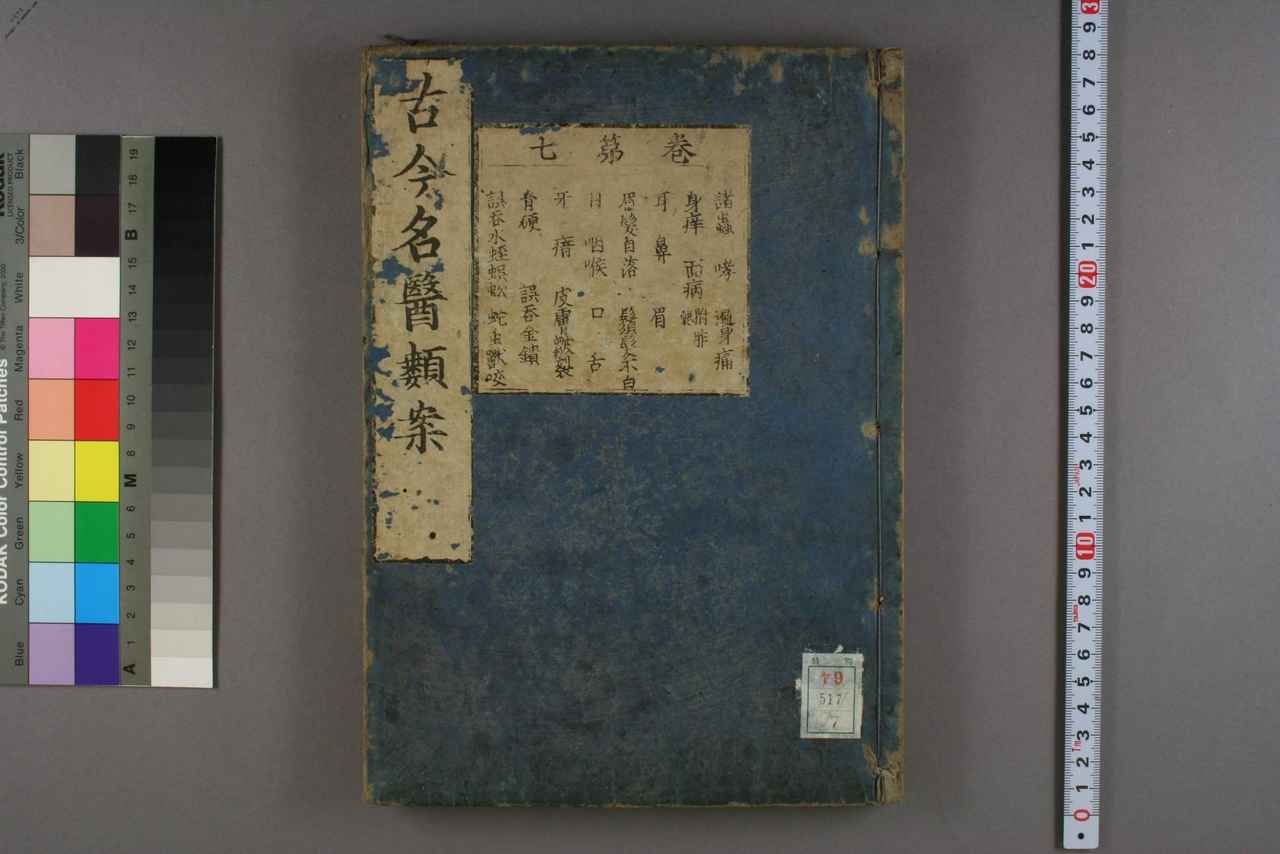 古今名醫類案
卷第七
諸蟲 哮 遍身痛
身癢 面病
耳 鼻 眉
眉髮自落 鬚髮不白
目 咽喉 口 舌
牙 瘖 皮膚皴裂
骨硬 誤吞金鎖
誤吞水蛭蜈蚣 蛇虫獸咬
ヤ9
517
7
KODAK Color Control Patches
© The Tiffen Company, 2000
Kodak
LICENSED PRODUCT
Blue Cyan Green Yellow Red Magenta White 3/Color Black
A 1 2 3 4 5 6 M 8 9 10 11 12 13 14 15 B 17 18 19
0 1 2 3 4 5 6 7 8 9 10 1 2 3 4 5 6 7 8 9 20 1 2 3 4 5 6 7 8 9 3